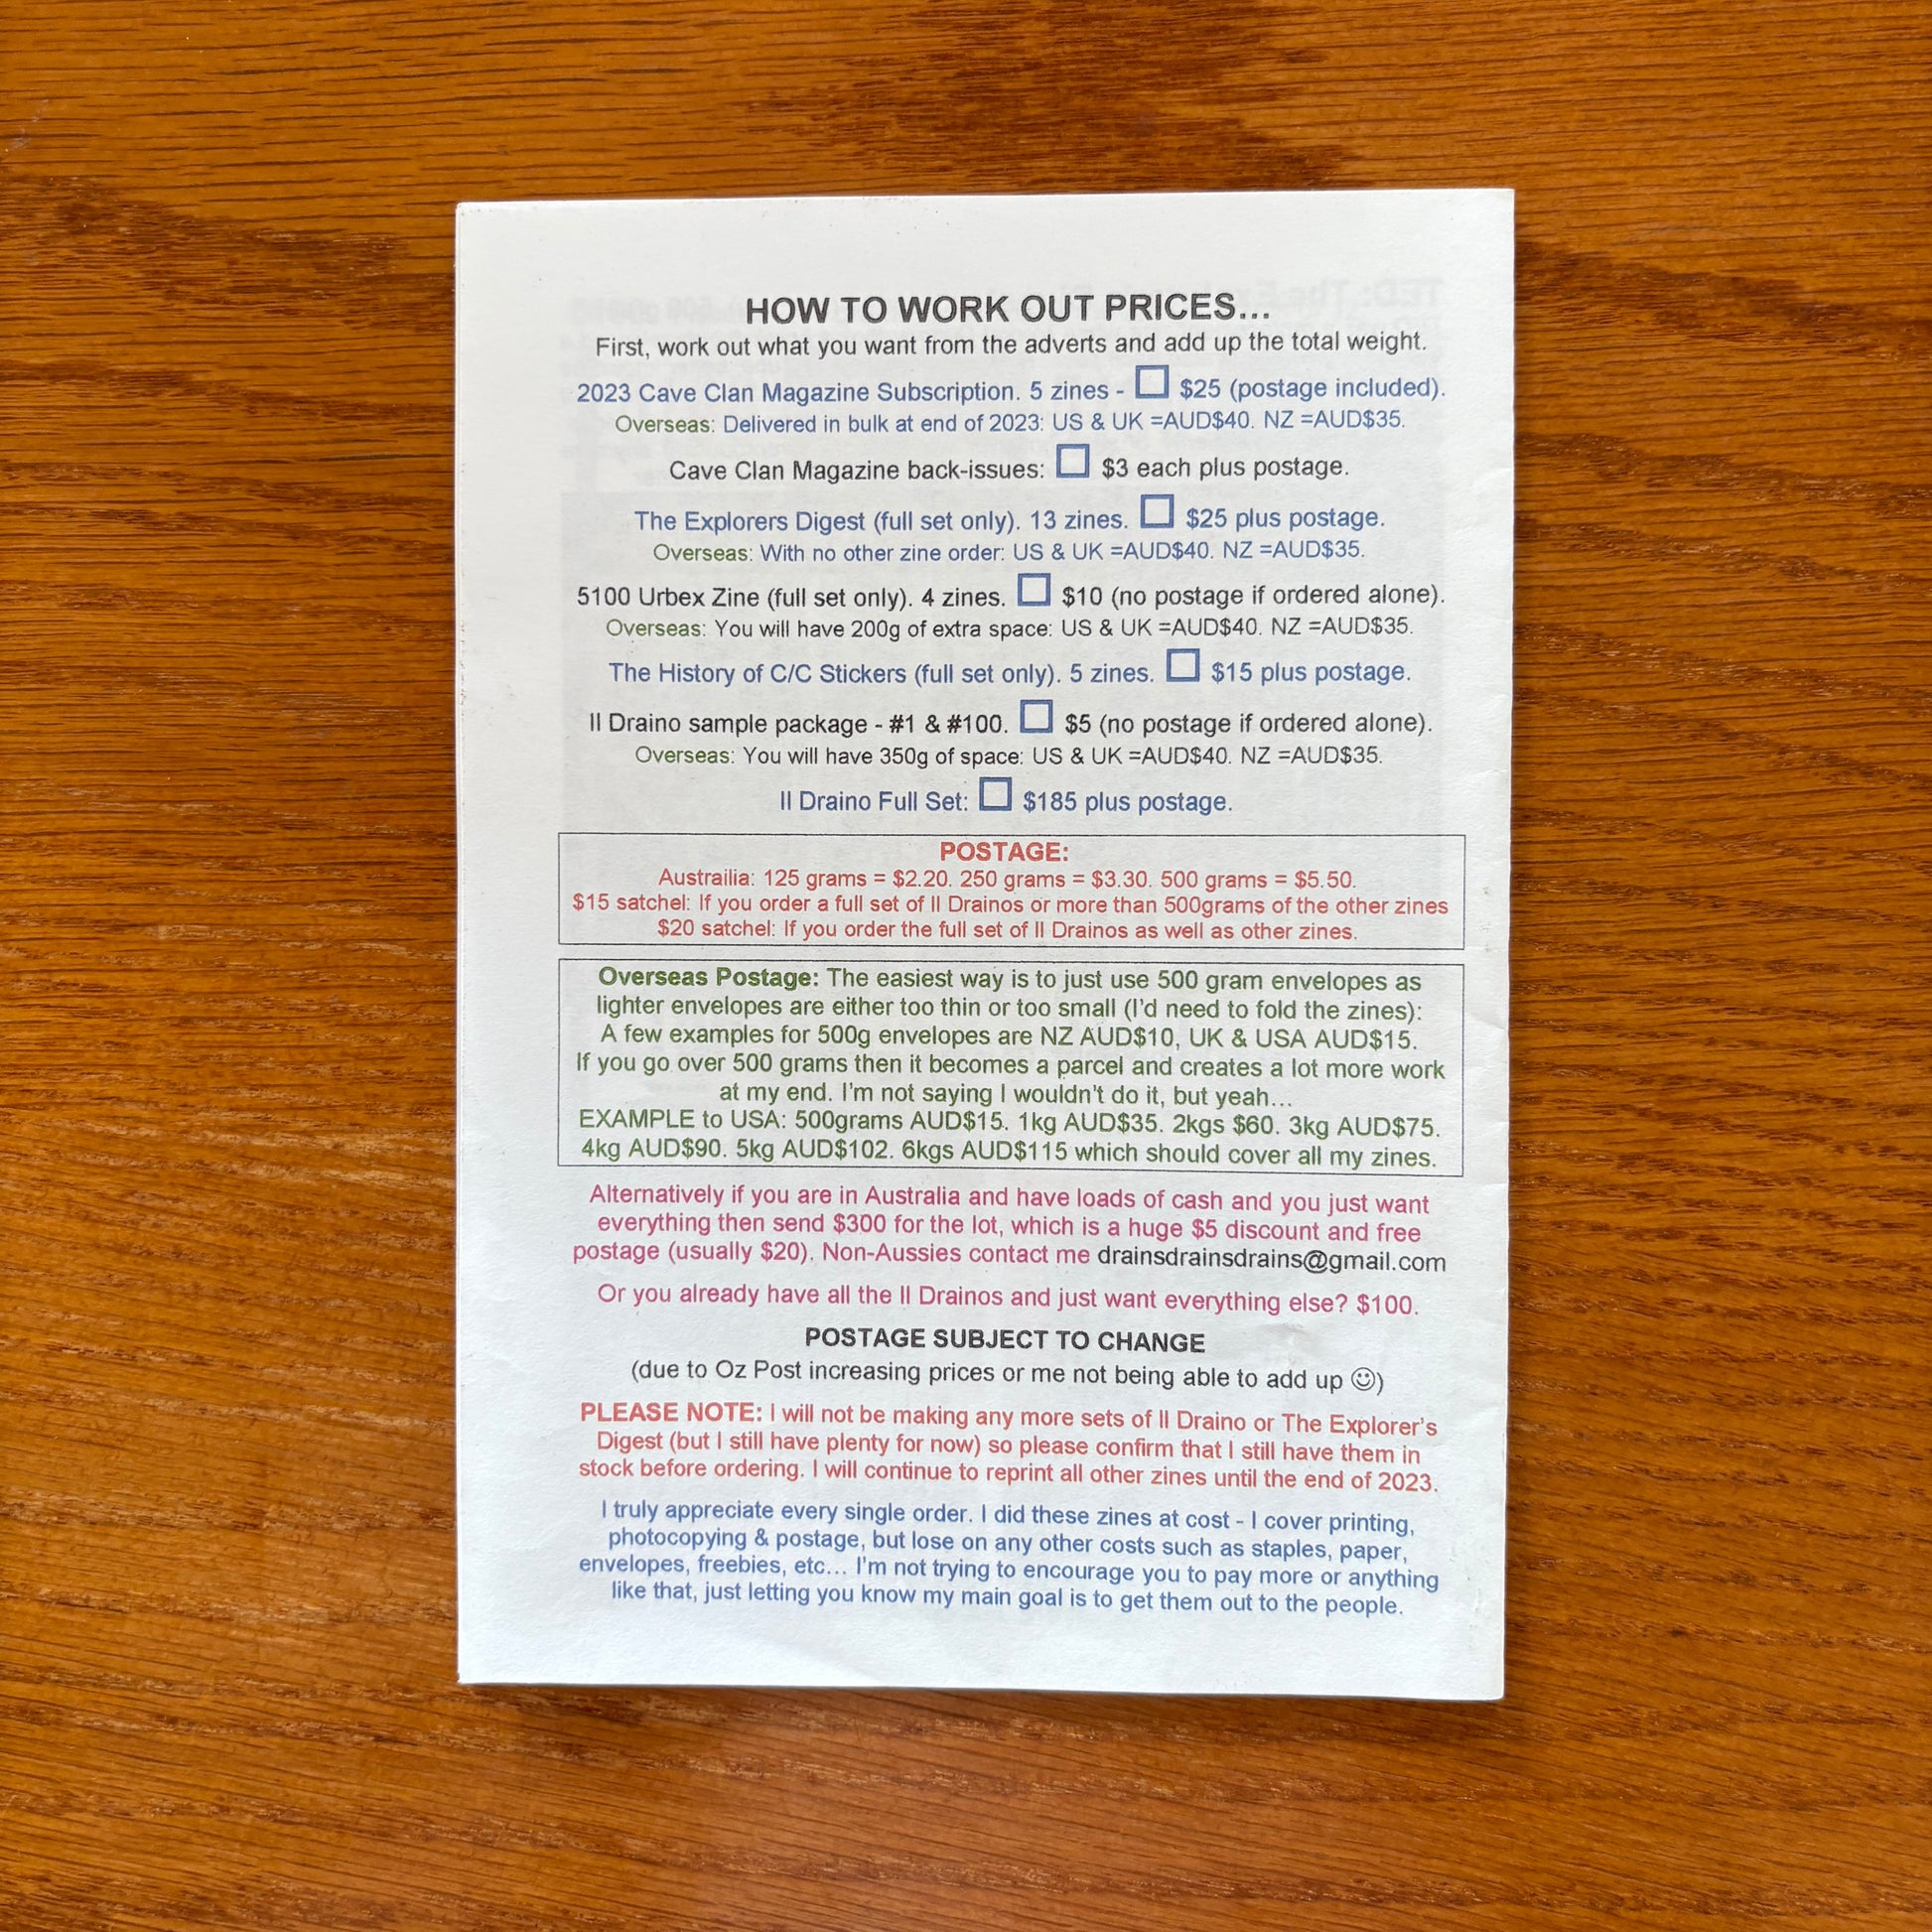 HOW TO WORK OUT PRICES...
First, work out what you want from the adverts and add up the total weight.
2023 Cave Clan Magazine Subscription. 5 zines - ☐ $25 (postage included).
Overseas: Delivered in bulk at end of 2023: US & UK =AUD$40. NZ =AUD$35.
Cave Clan Magazine back-issues: ☐ $3 each plus postage.
The Explorers Digest (full set only). 13 zines. ☐ $25 plus postage.
Overseas: With no other zine order: US & UK =AUD$40. NZ =AUD$35.
5100 Urbex Zine (full set only). 4 zines. ☐ $10 (no postage if ordered alone).
Overseas: You will have 200g of extra space: US & UK =AUD$40. NZ =AUD$35.
The History of C/C Stickers (full set only). 5 zines. ☐ $15 plus postage.
Il Draino sample package - #1 & #100. ☐ $5 (no postage if ordered alone).
Overseas: You will have 350g of space: US & UK =AUD$40. NZ =AUD$35.
Il Draino Full Set: ☐ $185 plus postage.
POSTAGE:
Austrailia: 125 grams = $2.20. 250 grams = $3.30. 500 grams = $5.50.
$15 satchel: If you order a full set of Il Drainos or more than 500grams of the other zines
$20 satchel: If you order the full set of Il Drainos as well as other zines.
Overseas Postage: The easiest way is to just use 500 gram envelopes as
lighter envelopes are either too thin or too small (I'd need to fold the zines):
A few examples for 500g envelopes are NZ AUD$10, UK & USA AUD$15.
If you go over 500 grams then it becomes a parcel and creates a lot more work
at my end. I'm not saying I wouldn't do it, but yeah...
EXAMPLE to USA: 500grams AUD$15. 1kg AUD$35. 2kgs $60. 3kg AUD$75.
4kg AUD$90. 5kg AUD$102. 6kgs AUD$115 which should cover all my zines.
Alternatively if you are in Australia and have loads of cash and you just want
everything then send $300 for the lot, which is a huge $5 discount and free
postage (usually $20). Non-Aussies contact me drainsdrainsdrains@gmail.com
Or you already have all the Il Drainos and just want everything else? $100.
POSTAGE SUBJECT TO CHANGE
(due to Oz Post increasing prices or me not being able to add up ☺)
PLEASE NOTE: I will not be making any more sets of Il Draino or The Explorer's
Digest (but I still have plenty for now) so please confirm that I still have them in
stock before ordering. I will continue to reprint all other zines until the end of 2023.
I truly appreciate every single order. I did these zines at cost - I cover printing,
photocopying & postage, but lose on any other costs such as staples, paper,
envelopes, freebies, etc... I'm not trying to encourage you to pay more or anything
like that, just letting you know my main goal is to get them out to the people.